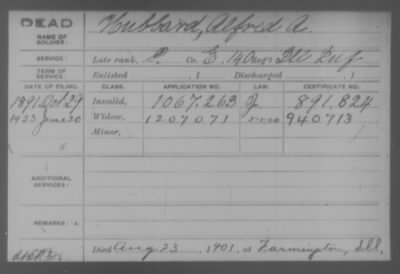 DEAD
NAME OF SOLDIER:
Hubbard, Alfred A.
SERVICE:
Late rank, P. Co. E, 14 Ill Inf
TERM OF SERVICE:
Enlisted , 1 Discharged , 1
DATE OF FILING. CLASS. APPLICATION NO. LAW. CERTIFICATE NO.
1891 Oct 29 Invalid, 1067.263 J 891.824
Widow, 1207071 940713
Minor,
ADDITIONAL SERVICES:
REMARKS:
Died Aug 23, 1901, at Farmington, Ill.